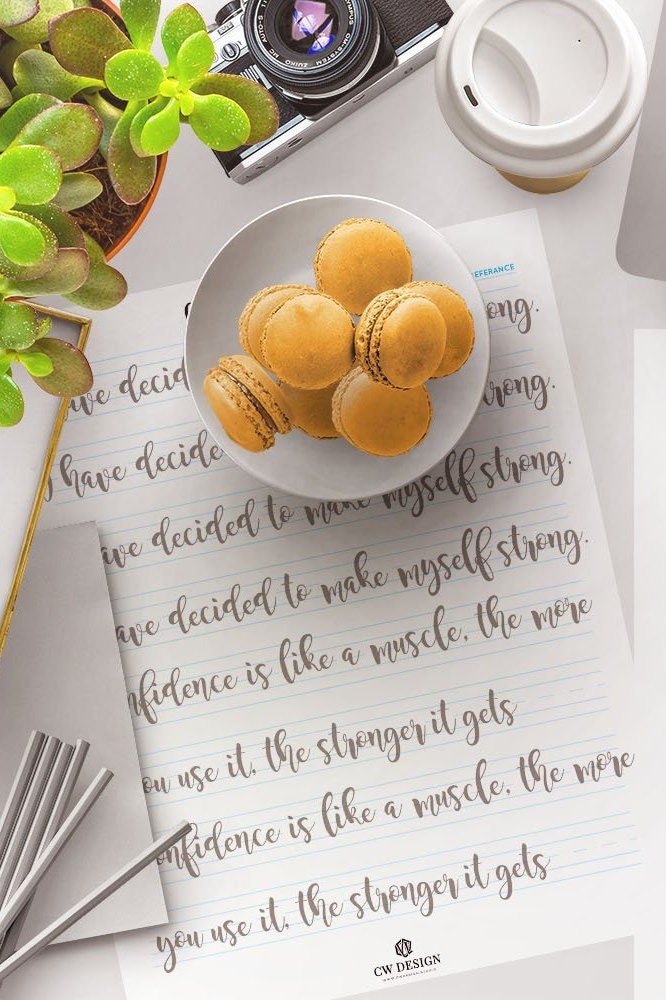 ZUIKO MC AUTO-S
EFERANCE
ave decid ong.
have decide rong.
ave decided to make myself strong.
ave decided to make myself strong.
nfidence is like a muscle, the more
ou use it, the stronger it gets
onfidence is like a muscle, the more
you use it, the stronger it gets
CW DESIGN